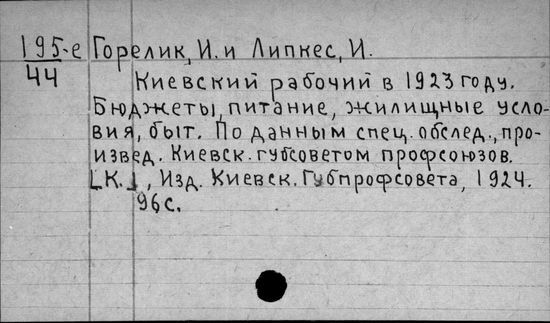 195-е Горелик, И. и Липкес, И.
44
Киевский рабочий в 1923 году.
Бюджеты, питание, жилищные усло-
вия, быт. По данным спец. обслед., про-
извед. Киевск. губсоветом профсоюзов.
[К.], Изд. Киевск. Губпрофсовета, 1924.
96с.